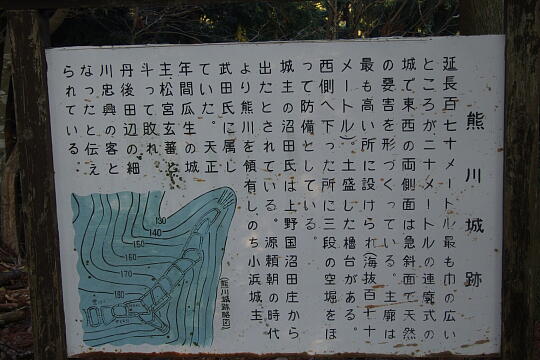 熊川城跡
延長百七十メートル最も巾の広い
ところが二十メートルの連廓式の
城で東西の両側面は急斜面で天然
の要害を形づくっている。主廓は
最も高い所に設けられ(海抜百十
メートル)。土盛した櫓台がある。
西側へ下った所に三段の空堀をほ
って防備としている。
城主の沼田氏は上野国沼田庄から
出たとされている。源頼朝の時代
より熊川を領有し、のち小浜城主
武田氏に属し
ていた。天正
年間瓜生の城
主松宮玄蕃と
斗って敗れ、
丹後田辺の細
川忠興の客と
なったと伝え
られている。
(熊川城跡略図)
130
140
150
160
170
180